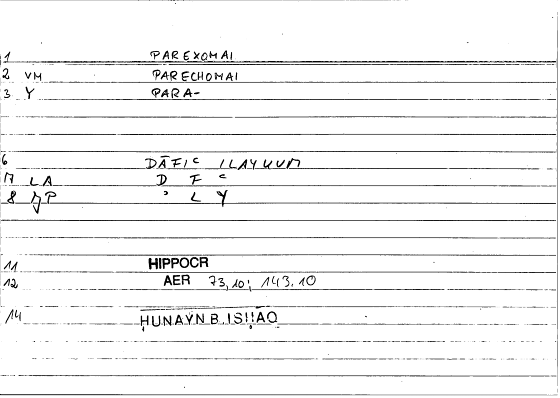 1 PAREXOMAI
2 VM PARECHOMAI
3 Y PARA-
6 DĀFIC ILAYKUM
17 LA D F C
8 JP ʾ L Y
11 HIPPOCR
12 AER 73,10; 143.10
14 ḤUNAYN B. ISḤĀQ